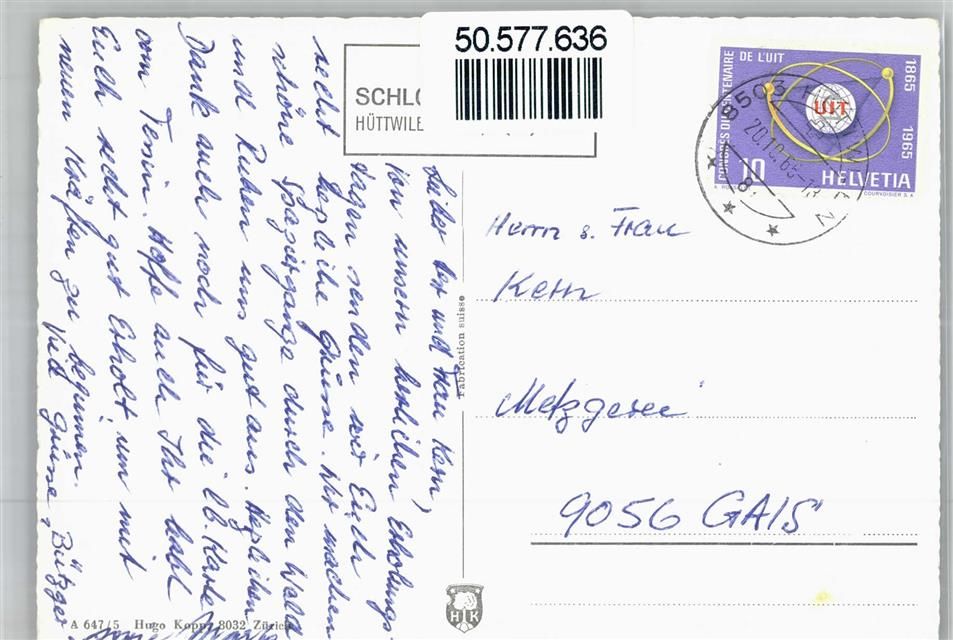 50.577.636
SCHLO
HÜTTWILE
CONGRÈS DU CENTENAIRE DE L'UIT
1865 1965
UIT
10 HELVETIA
COURVOISIER S.A.
8503
20.10.65-18
Herrn s. Frau
Kern
Metzgerei
9056 GAIS
Fabrication suisse
Lieber Herr und Frau Kern,
Von unsern herlichen Erholungs-
tagen senden wir Euch
herliche Grüsse. Wir machen
schöne Spaziergänge durch den Wald
und Ruhen uns gut aus. Herzlichen
Dank auch noch für die lb. Karte
vom Tessin. Hoffe auch Ihr habt
Euch recht gut Erholt um mit
neuen Kräften zu beginnen.
Viel Grüsse, Bützger
recht
H K
A 647/5 Hugo Kopp, 8032 Zürich